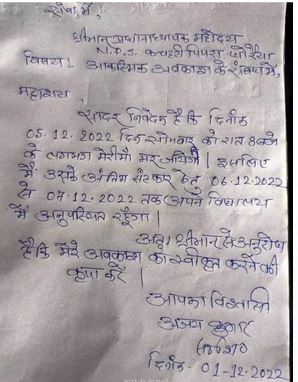 सेवा में,
श्रीमान् प्रधानाध्यापक महोदय
N.P.S. कचहरी पिपरा धोरैया
विषय:- आकस्मिक अवकाश के संबंध में,
महाशय
सादर निवेदन है कि दिनांक
05.12.2022 दिन सोमवार को रात 8 बजे
के लगभग मेरी माँ मर जायेगी। इसलिए
मैं उनके अंतिम संस्कार हेतु 06.12.2022
से 07.12.2022 तक अपने विद्यालय
में अनुपस्थित रहूँगा।
अतः श्रीमान से अनुरोध
है कि मेरे अवकाश को स्वीकृत करने की
कृपा करें।
आपका विश्वासी
अजय कुमार
दिनांक. 01-12-2022